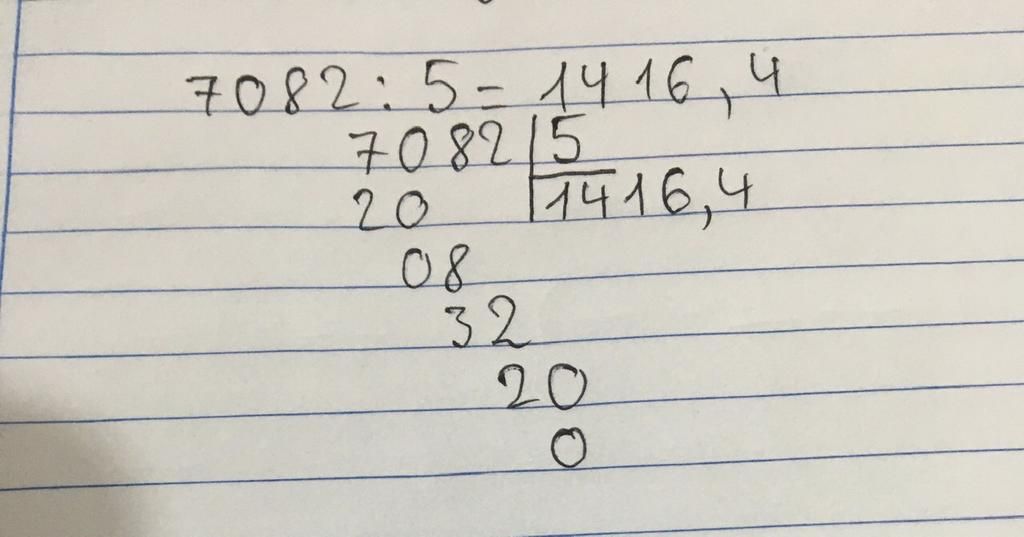 7082 : 5 = 1416,4
7082 5
20 1416,4
08
32
20
0